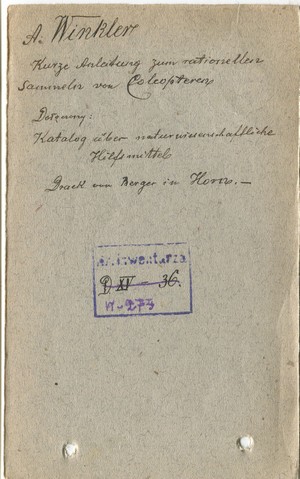 A. Winkler
Kurze Anleitung zum rationellen
Sammeln von Coleopteren
Katalog über naturwissenschaftliche
Hilfsmittel
Druck von Berger in Horn. —
Nr. inwentarza
D XV — 36.